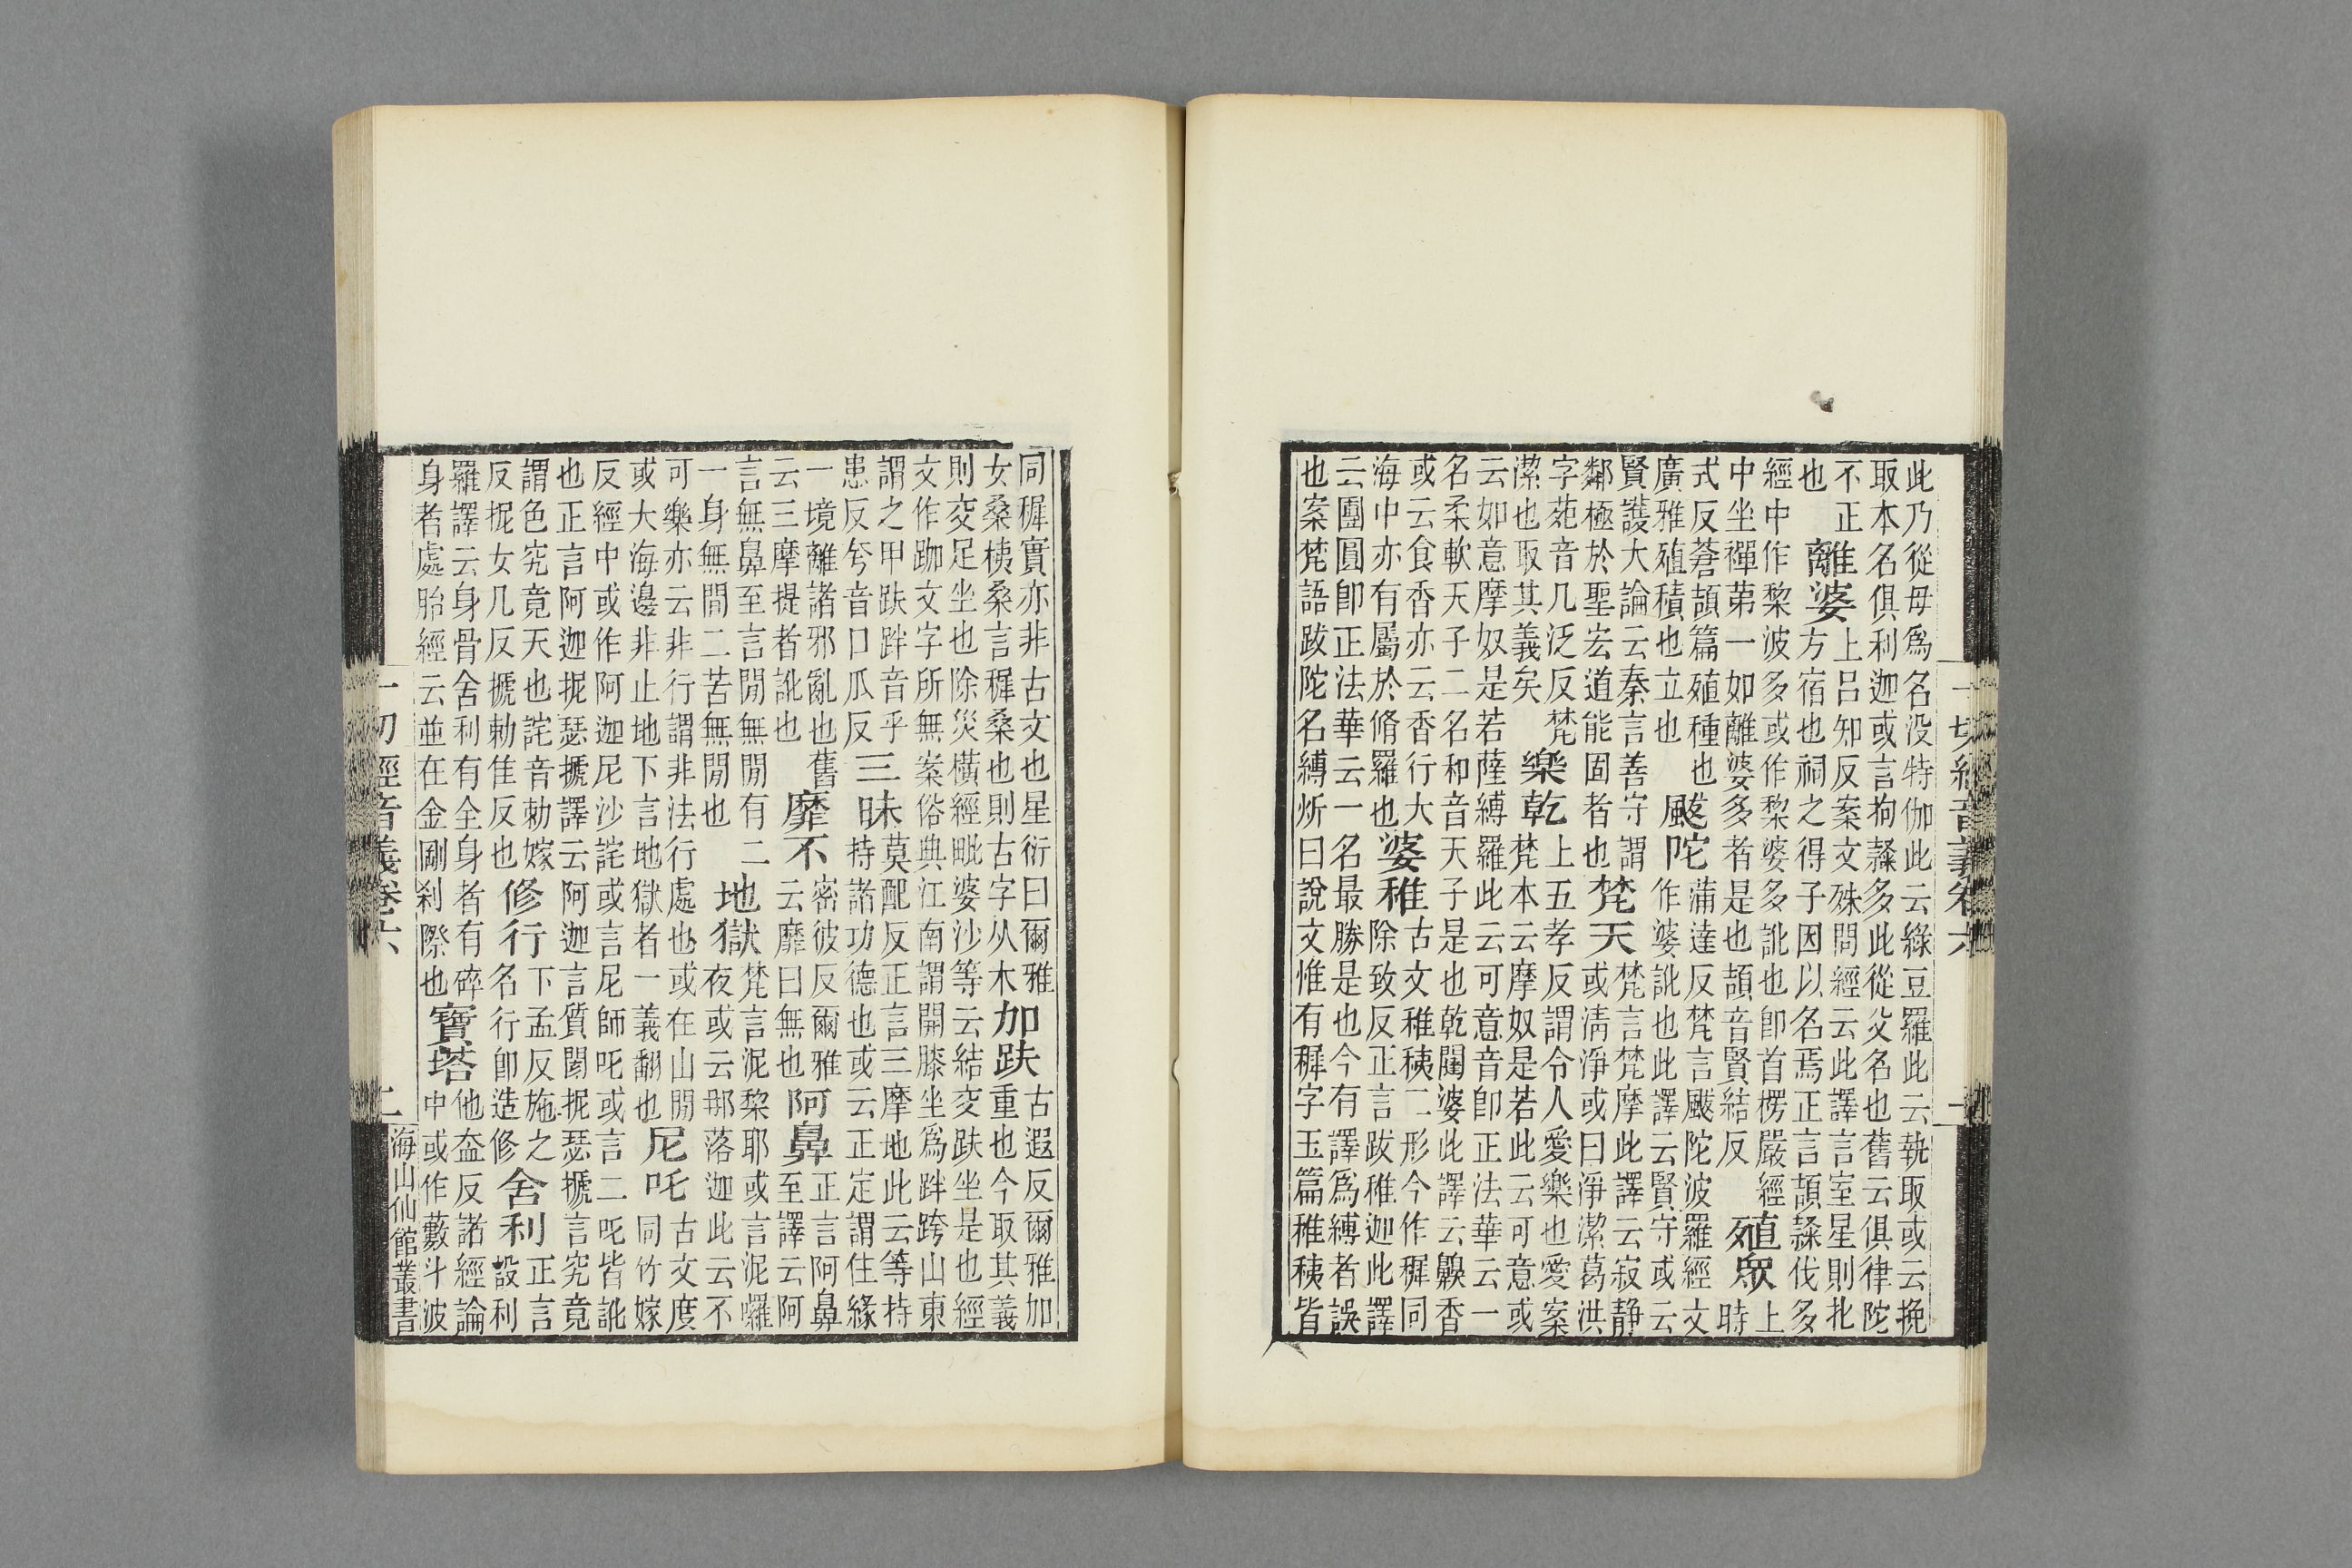 一切經音義卷六
一
此乃從母爲名没特伽此云綠豆羅此云執取或云挽
取本名俱利迦或言拘隸多此從父名也舊云俱律陀
不正
也
離婆
上呂知反案文殊問經云此譯言室星則北
方宿也祠之得子因以名焉正言頡隸伐多
經中作黎波多或作黎婆多訛也卽首楞嚴經
中坐禪第一如離婆多者是也頡音賢結反
殖眾
上
時
式反蒼頡篇殖種也
廣雅殖積也立也
颰陀
蒲達反梵言颰陀波羅經文
作婆訛也此譯云賢守或云
賢護大論云秦言善守謂
鄰極於聖宏道能固者也
梵天
梵言梵摩此譯云寂静
或清淨或曰淨潔葛洪
字苑音几泛反梵
潔也取其義矣
樂乾
上五孝反謂令人愛樂也愛案
梵本云摩奴是若此云可意或
云如意摩奴是若薩縛羅此云可意音卽正法華云一
名柔軟天子二名和音天子是也乾闥婆此譯云齅香
或云食香亦云香行大
海中亦有屬於脩羅也
婆稚
古文稚䄺二形今作穉同
除致反正言跋稚迦此譯
云團圓卽正法華云一名最勝是也今有譯爲縛者誤
也案梵語跋陀名縛炘曰說文惟有穉字玉篇稚䄺皆
同穉實亦非古文也星衍曰爾雅
女桑桋桑言穉桑也則古字从木
加趺
古遐反爾雅加
重也今取其義
則交足坐也除災橫經毗婆沙等云結交趺坐是也經
文作跏文字所無案俗典江南謂開膝坐爲跘跨山東
謂之甲趺跘音乎
患反兮音口瓜反
三昧
莫配反正言三摩地此云等持
持諸功德也或云正定謂住緣
一境離諸邪亂也舊
云三摩提者訛也
靡不
密彼反爾雅
云靡曰無也
阿鼻
正言阿鼻
至譯云阿
言無鼻至言閒無閒有二
一身無閒二苦無閒也
地獄
梵言泥黎耶或言泥囉
夜或云那落迦此云不
可樂亦云非行謂非法行處也或在山閒
或大海邊非止地下言地獄者一義翻也
尼吒
古文度
同竹嫁
反經中或作阿迦尼沙詫或言尼師吒或言二吒皆訛
也正言阿迦抳瑟搋譯云阿迦言質閡抳瑟搋言究竟
謂色究竟天也詫音勅嫁
反抳女几反搋勅佳反也
修行
下孟反施之
名行卽造修
舍利
正言
設利
羅譯云身骨舍利有全身者有碎
身者處胎經云並在金剛刹際也
寶塔
他盍反諸經論
中或作藪斗波
一切經音義卷六
二
海山仙館叢書